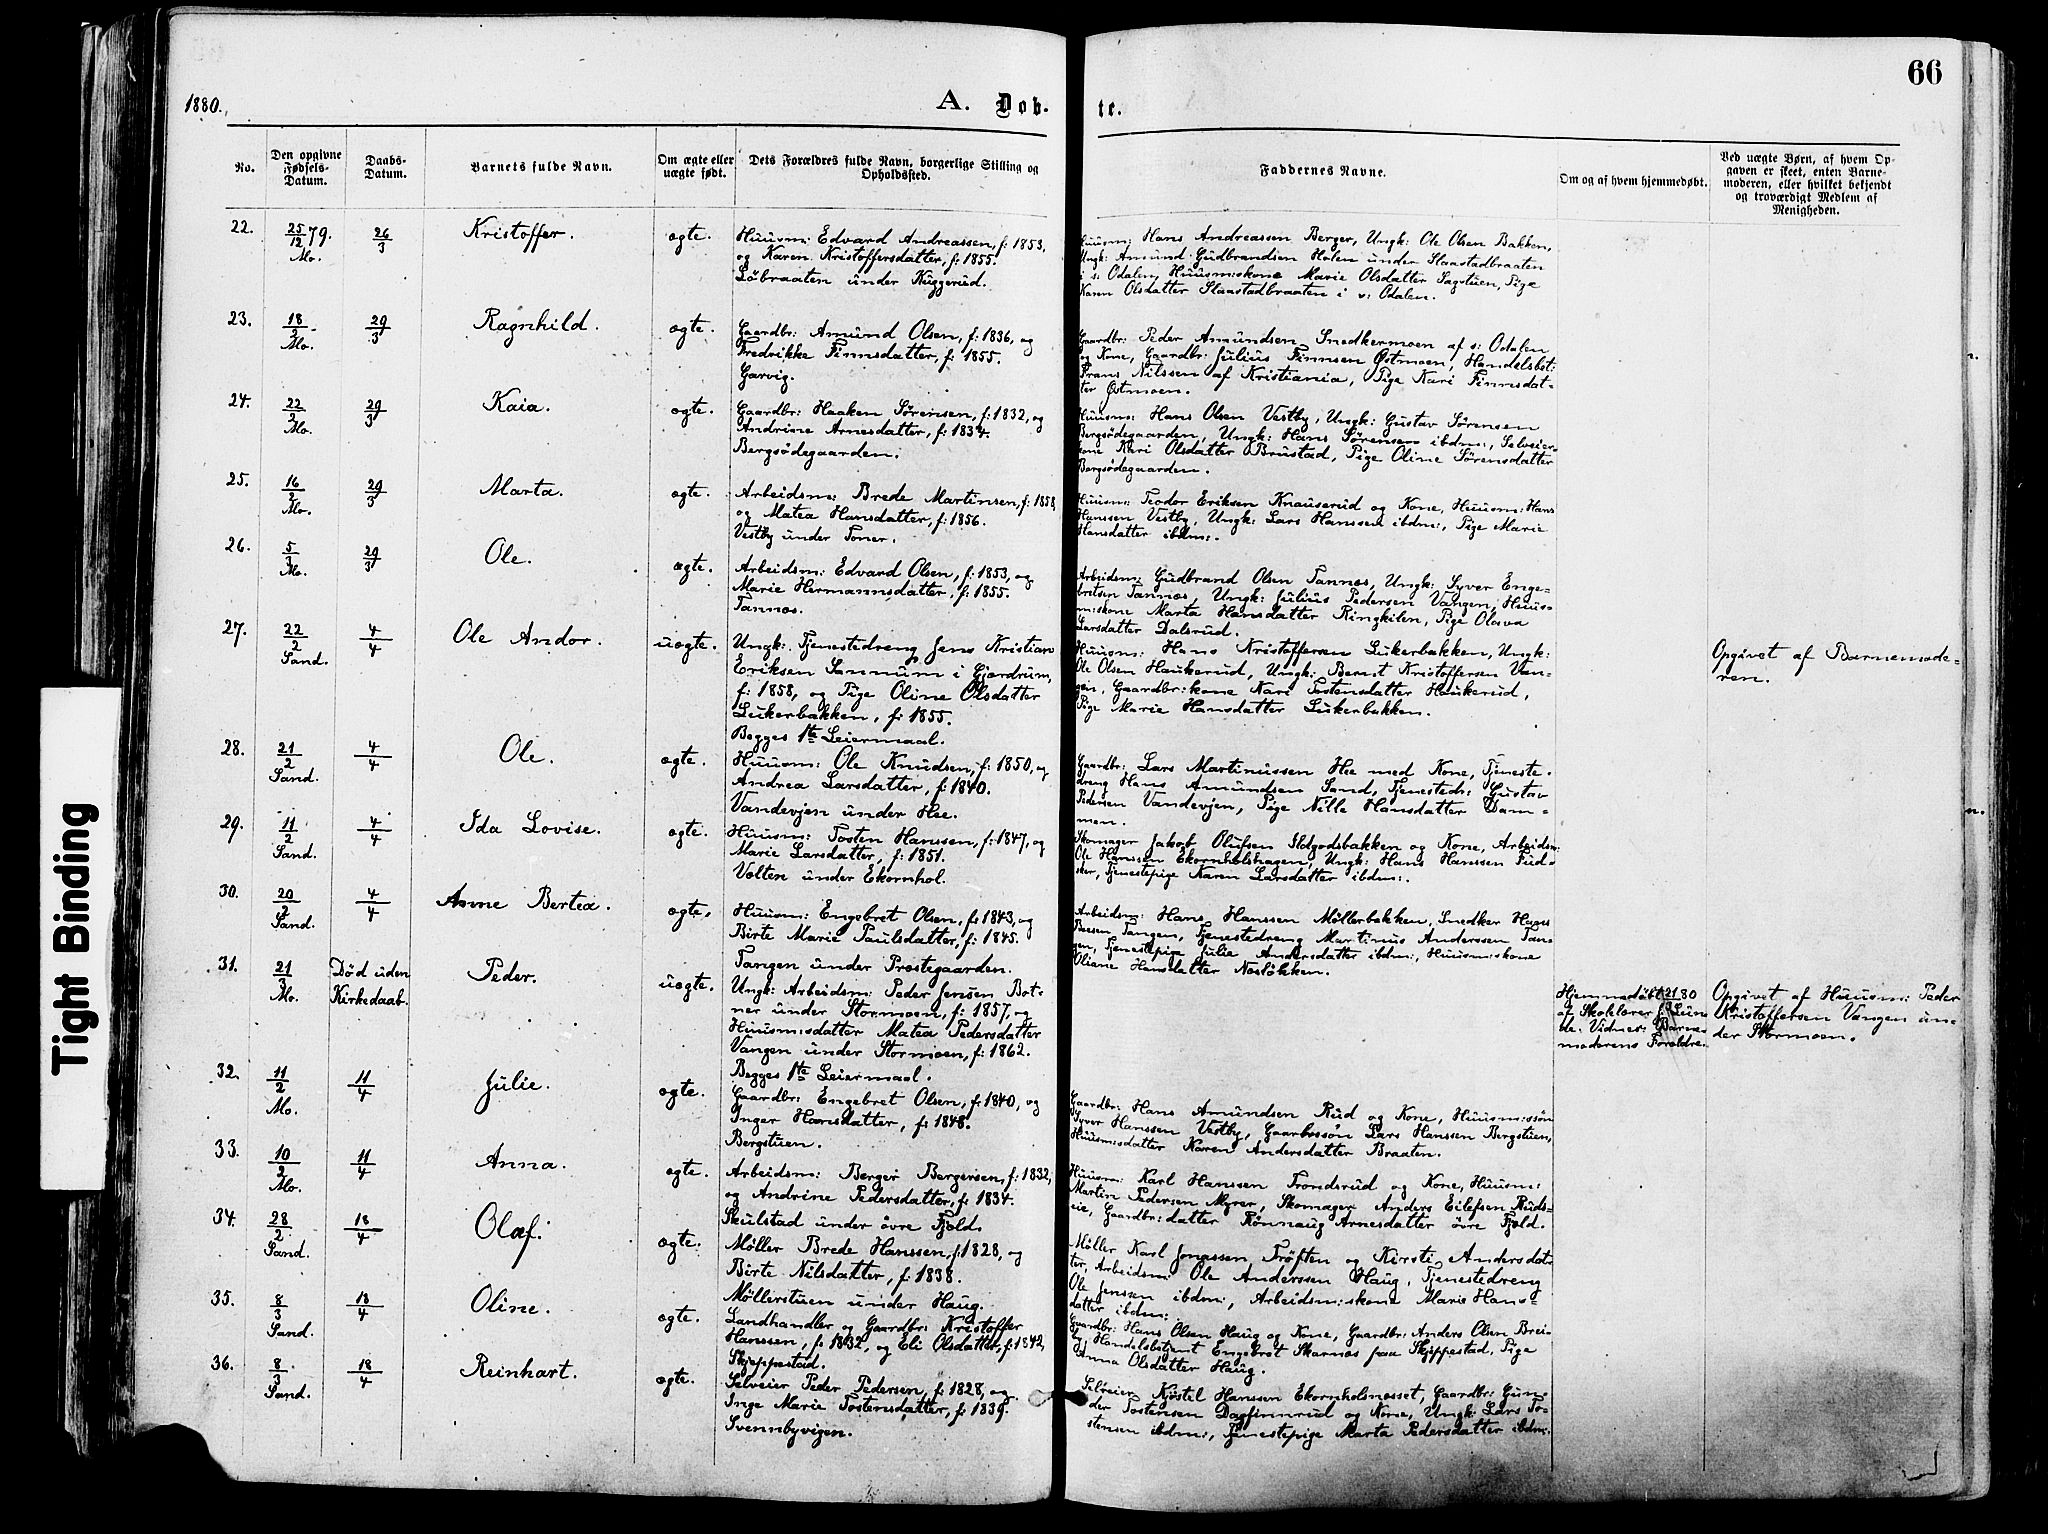 66
1880.
A. Døb-
te.
No.
Den opgivne
Fødsels-
Datum.
Daabs-
Datum.
Barnets fulde Navn.
Om ægte eller
uægte født.
Dets Forældres fulde Navn, borgerlige Stilling og
Opholdssted.
Faddernes Navne.
Om og af hvem hjemmedøbt.
Ved uægte Børn, af hvem Op-
gaven er skeet, enten Barne-
moderen, eller hvilket bekjendt
og troværdigt Medlem af
Menigheden.
22. 25/12 79. Mo. 26/3 Kristoffer. ægte.
Huusm: Edvard Andreassen, f: 1853.
og Karen Kristoffersdatter, f: 1855.
Löbraaten under Kuggerud.
Huusm: Hans Andreassen Berger, Ungk: Ole Olsen Bakken,
Ungk: Amund Gudbrandsen Holen under Slaastadbraaten
i s: Odalen, Huusm:skone Marie Olsdatter Sagstuen, Pige
Karen Olsdatter Slaastadbraaten i s: Odalen.
23. 18/2 Mo. 29/3 Ragnhild. ægte.
Gaardbr: Amund Olsen, f: 1836, og
Fredrikke Finnsdatter, f: 1855.
Garvig.
Gaardbr: Peder Amundsen Snedkermoen af s: Odalen
og Kone, Gaardbr: Julius Finnsen Østmoen, Handelsbet:
Frans Nilssen af Kristiania, Pige Kari Finnsdat-
ter Østmoen.
24. 22/2 Mo. 29/3 Kaia. ægte.
Gaardbr: Haaken Sørensen, f: 1832, og
Andrine Arnesdatter, f: 1834.
Bergsødegaarden.
Huusm: Hans Olsen Vestby, Ungk: Gustav Sørensen
Bergsødegaarden, Ungk: Hans Sørensen ibdm:, Selveier-
kone Kari Olsdatter Brustad, Pige Oline Sørensdatter
Bergsødegaarden.
25. 16/2 Mo. 29/3 Marta. ægte.
Arbeidsm: Brede Martinsen, f: 1858,
og Matea Hansdatter, f: 1856.
Vestby under Toner.
Huusm: Teodor Eriksen Knauserud og Kone, Huusm: Hans
Hanssen Vestby, Ungk: Lars Hanssen ibdm:, Pige Marie
Hansdatter ibdm:.
26. 5/3 Mo. 29/3 Ole. ægte.
Arbeidsm: Edvard Olsen, f: 1853, og
Marie Hermannsdatter, f: 1855.
Tannæs.
Arbeidsm: Gudbrand Olsen Tannæs, Ungk: Syver Enge-
bretsen Tannæs, Ungk: Julius Pedersen Vangen, Huus-
m:skone Marta Hansdatter Ringkilen, Pige Olava
Larsdatter Dalsrud.
27. 22/2 Sand. 4/4 Ole Andor. uægte.
Ungk: Tjenestedreng Jens Kristian
Eriksen Sannum i Gjærdrum,
f: 1858, og Pige Oline Olsdatter
Lukerbakken, f: 1855.
Begges 1te Leiermaal.
Huusm: Hans Kristoffersen Lukerbakken, Ungk:
Ole Olsen Haukerud, Ungk: Bernt Kristoffersen Van-
gen, Gaardbr:kone Kari Tostensdatter Haukerud,
Pige Marie Hansdatter Lukerbakken.
Opgivet af Barnemode-
ren.
28. 21/2 Sand. 4/4 Ole. ægte.
Huusm: Ole Knudsen, f: 1850, og
Andrea Larsdatter, f: 1840.
Vandevjen under Hee.
Gaardbr: Lars Martinussen Hee med Kone, Tjeneste-
dreng Hans Amundsen Sand, Tjenestedr: Gustav
Pedersen Vandevjen, Pige Nille Hansdatter Dam-
men.
29. 11/2 Sand. 4/4 Ida Lovise. ægte.
Huusm: Tosten Hanssen, f: 1847, og
Marie Larsdatter, f: 1851.
Volten under Ekornhol.
Skomager Jakob Olufsen Ildgodsbakken og Kone, Arbeidsm:
Ole Hanssen Ekornholshagen, Ungk: Hans Hanssen Fud-
sker, Tjenestepige Karen Larsdatter ibdm:.
30. 20/2 Sand. 4/4 Anne Bertea. ægte.
Huusm: Engebret Olsen, f: 1843, og
Birte Marie Paulsdatter, f: 1845.
Tangen under Præstegaarden.
Arbeidsm: Hans Hanssen Møllerbakken, Snedker Hans
Tangen, Tjenestedreng Martinus Anderssen Tan-
gen, Tjenestepige Julie Andersdatter ibdm:, Huusm:skone
Oliane Hansdatter Næsløkken.
31. 21/3 Mo. Død uden
Kirkedaab. Peder. uægte.
Ungk: Arbeidsm: Peder Jensen Bot-
ner under Stormoen, f: 1857, og
Huusm:sdatter Matea Pedersdatter
Vangen under Stormoen, f: 1862.
Begges 1te Leiermaal.
Hjemmedøbt 21/3 80
af Skolelærer Lun-
de. Vidner: Barne-
moderens Forældre.
Opgivet af Huusm: Peder
Kristoffersen Vangen un-
der Stormoen.
32. 11/2 Mo. 11/4 Julie. ægte.
Gaardbr: Engebret Olsen, f: 1840, og
Inger Hansdatter, f: 1848.
Bergstuen.
Gaardbr: Hans Amundsen Rud og Kone, Huusm:ssøn
Syver Hanssen Vestby, Gaarbrssøn Lars Hanssen Bergstuen,
Huusm:sdatter Karen Andersdatter Braaten.
33. 10/2 Mo. 11/4 Anna. ægte.
Arbeidsm: Berger Bergersen, f: 1832,
og Andrine Pedersdatter, f: 1834.
Skulstad under övre Fjeld.
Huusm: Karl Hanssen Trondsrud og Kone, Huusm:
Martin Pedersen Myrer, Skomager Anders Eilefsen Ruds-
eie, Gaardbr:datter Rönnaug Arnesdatter övre Fjeld.
34. 28/2 Sand. 18/4 Olaf. ægte.
Møller Brede Hanssen, f: 1828, og
Birte Nilsdatter, f: 1838.
Møllerstuen under Haug.
Møller Karl Jonassen Trøften og Kirsti Andersdat-
ter, Arbeidsm: Ole Anderssen Haug, Tjenestedreng
Ole Jensen ibdm:, Arbeidsm:skone Marie Hans-
datter ibdm:
35. 8/3 Sand. 18/4 Oline. ægte.
Landhandler og Gaardbr: Kristoffer
Hanssen, f: 1832, og Eli Olsdatter, f: 1842,
Skjeppestad.
Gaardbr: Hans Olsen Haug og Kone, Gaardbr: Anders Olsen Brei-
by, Handelsbetjent Engebret Skarnæs paa Skjeppestad, Pige
Anna Olsdatter Haug.
36. 8/3 Sand. 18/4 Reinhart. ægte.
Selveier Peder Pedersen, f: 1828, og
Inge Marie Tostensdatter, f: 1839.
Svennbyvigen.
Selveier Kjøstel Hanssen Ekornholsnæsset, Gaardbr: Gun-
der Tostensen Dagfinnrud og Kone, Ungk: Lars To-
stensen ibdm:, Tjenestepige Marta Pedersdatter ibdm:
Tight Binding